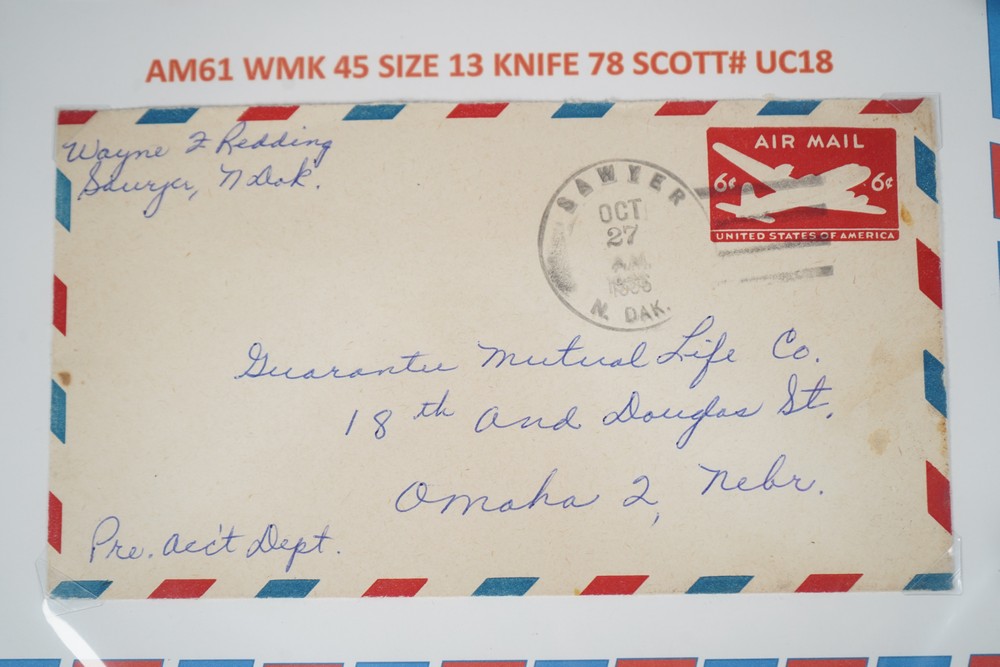 AM61 WMK 45 SIZE 13 KNIFE 78 SCOTT# UC18
Wayne F Redding
Sawyer, N Dak.
AIR MAIL
6¢ 6¢
UNITED STATES OF AMERICA
SAWYER
OCT
27
A.M.
N. DAK.
Guarantee Mutual Life Co.
18th and Douglas St.
Omaha 2, Nebr.
Pre. Acc't Dept.